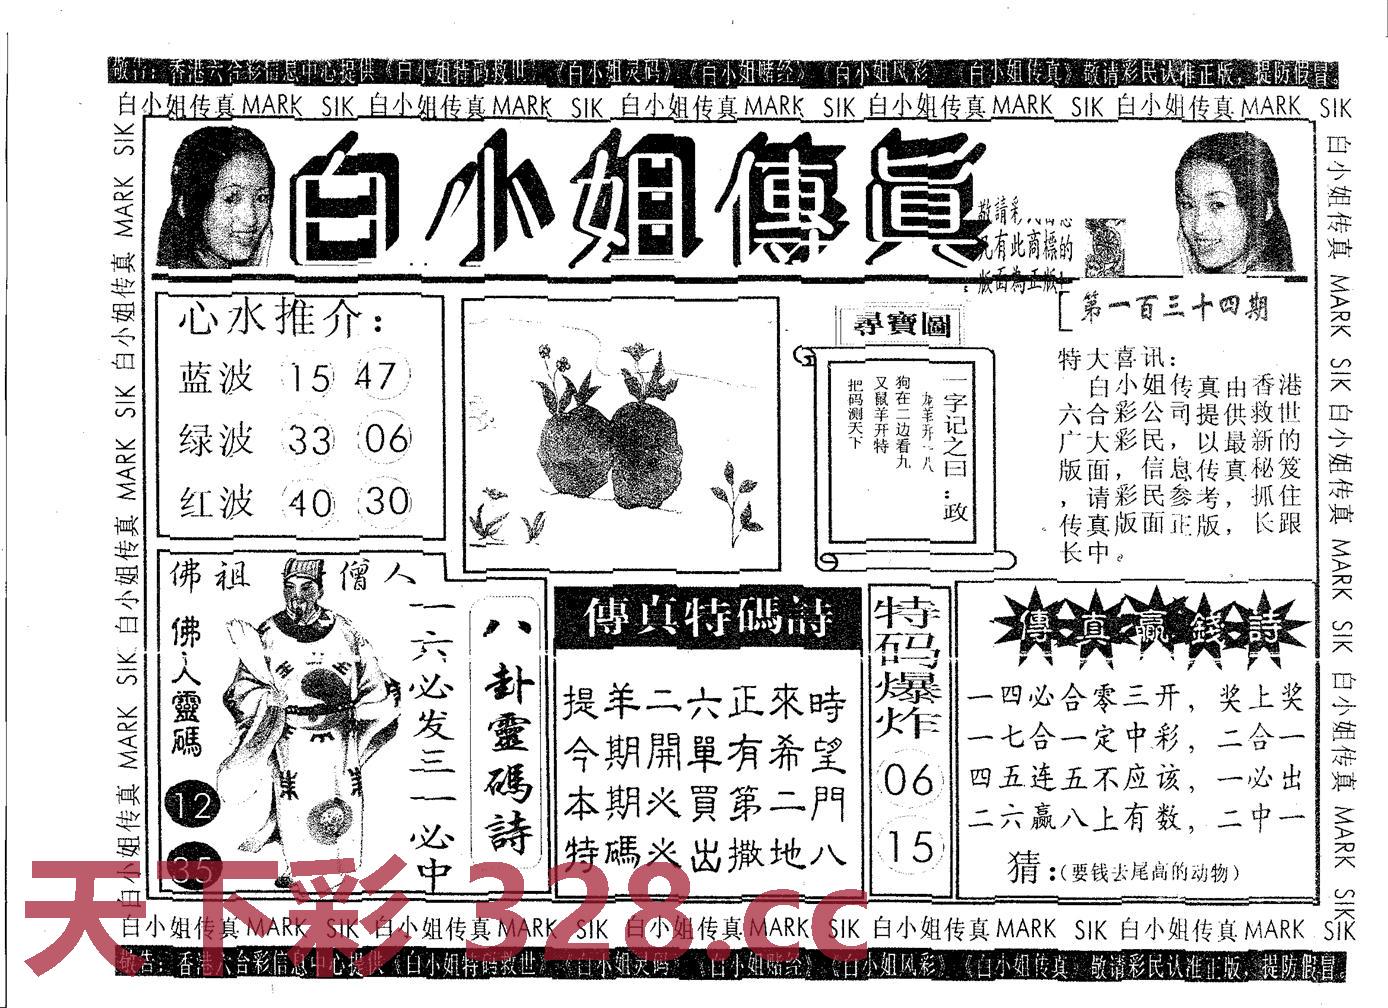 敬告：香港六合彩信息中心提供《白小姐特码救世》《白小姐灵码》《白小姐赌经》《白小姐风彩》《白小姐传真》敬请彩民认准正版，提防假冒。
白小姐传真 MARK SIK 白小姐传真 MARK SIK 白小姐传真 MARK SIK 白小姐传真 MARK SIK 白小姐传真 MARK SIK
白小姐传真 MARK SIK 白小姐传真 MARK SIK 白小姐传真 MARK SIK
白小姐傳眞
敬請彩
有此商標的
版面為正版
第一百三十四期
心水推介：
蓝波 15 47
绿波 33 06
红波 40 30
尋寶圖
一字记之曰：政
龙羊开一八
狗在二边看九
又鼠羊开特
把码测天下
特大喜讯：
白小姐传真由香港
六合彩公司提供救世
广大彩民，以最新的
版面，信息传真秘笈
，请彩民参考，抓住
传真版面正版，长跟
长中。
佛祖 僧人
佛人靈碼
12
35
一六必发三一必中
八卦靈碼詩
傳真特碼詩
提羊二六正來時
今期開單有希望
本期必買第二門
特碼必出撒地八
特码爆炸
06
15
傳真贏錢詩
一四必合零三开，奖上奖
一七合一定中彩，二合一
四五连五不应该，一必出
二六赢八上有数，二中一
猜：（要钱去尾高的动物）
白小姐传真 MARK SIK 白小姐传真 MARK SIK 白小姐传真 MARK SIK
白小姐传真 MARK SIK 白小姐传真 MARK SIK 白小姐传真 MARK SIK 白小姐传真 MARK SIK 白小姐传真 MARK SIK
敬告：香港六合彩信息中心提供《白小姐特码救世》《白小姐灵码》《白小姐赌经》《白小姐风彩》《白小姐传真》敬请彩民认准正版，提防假冒。
天下彩 328.cc